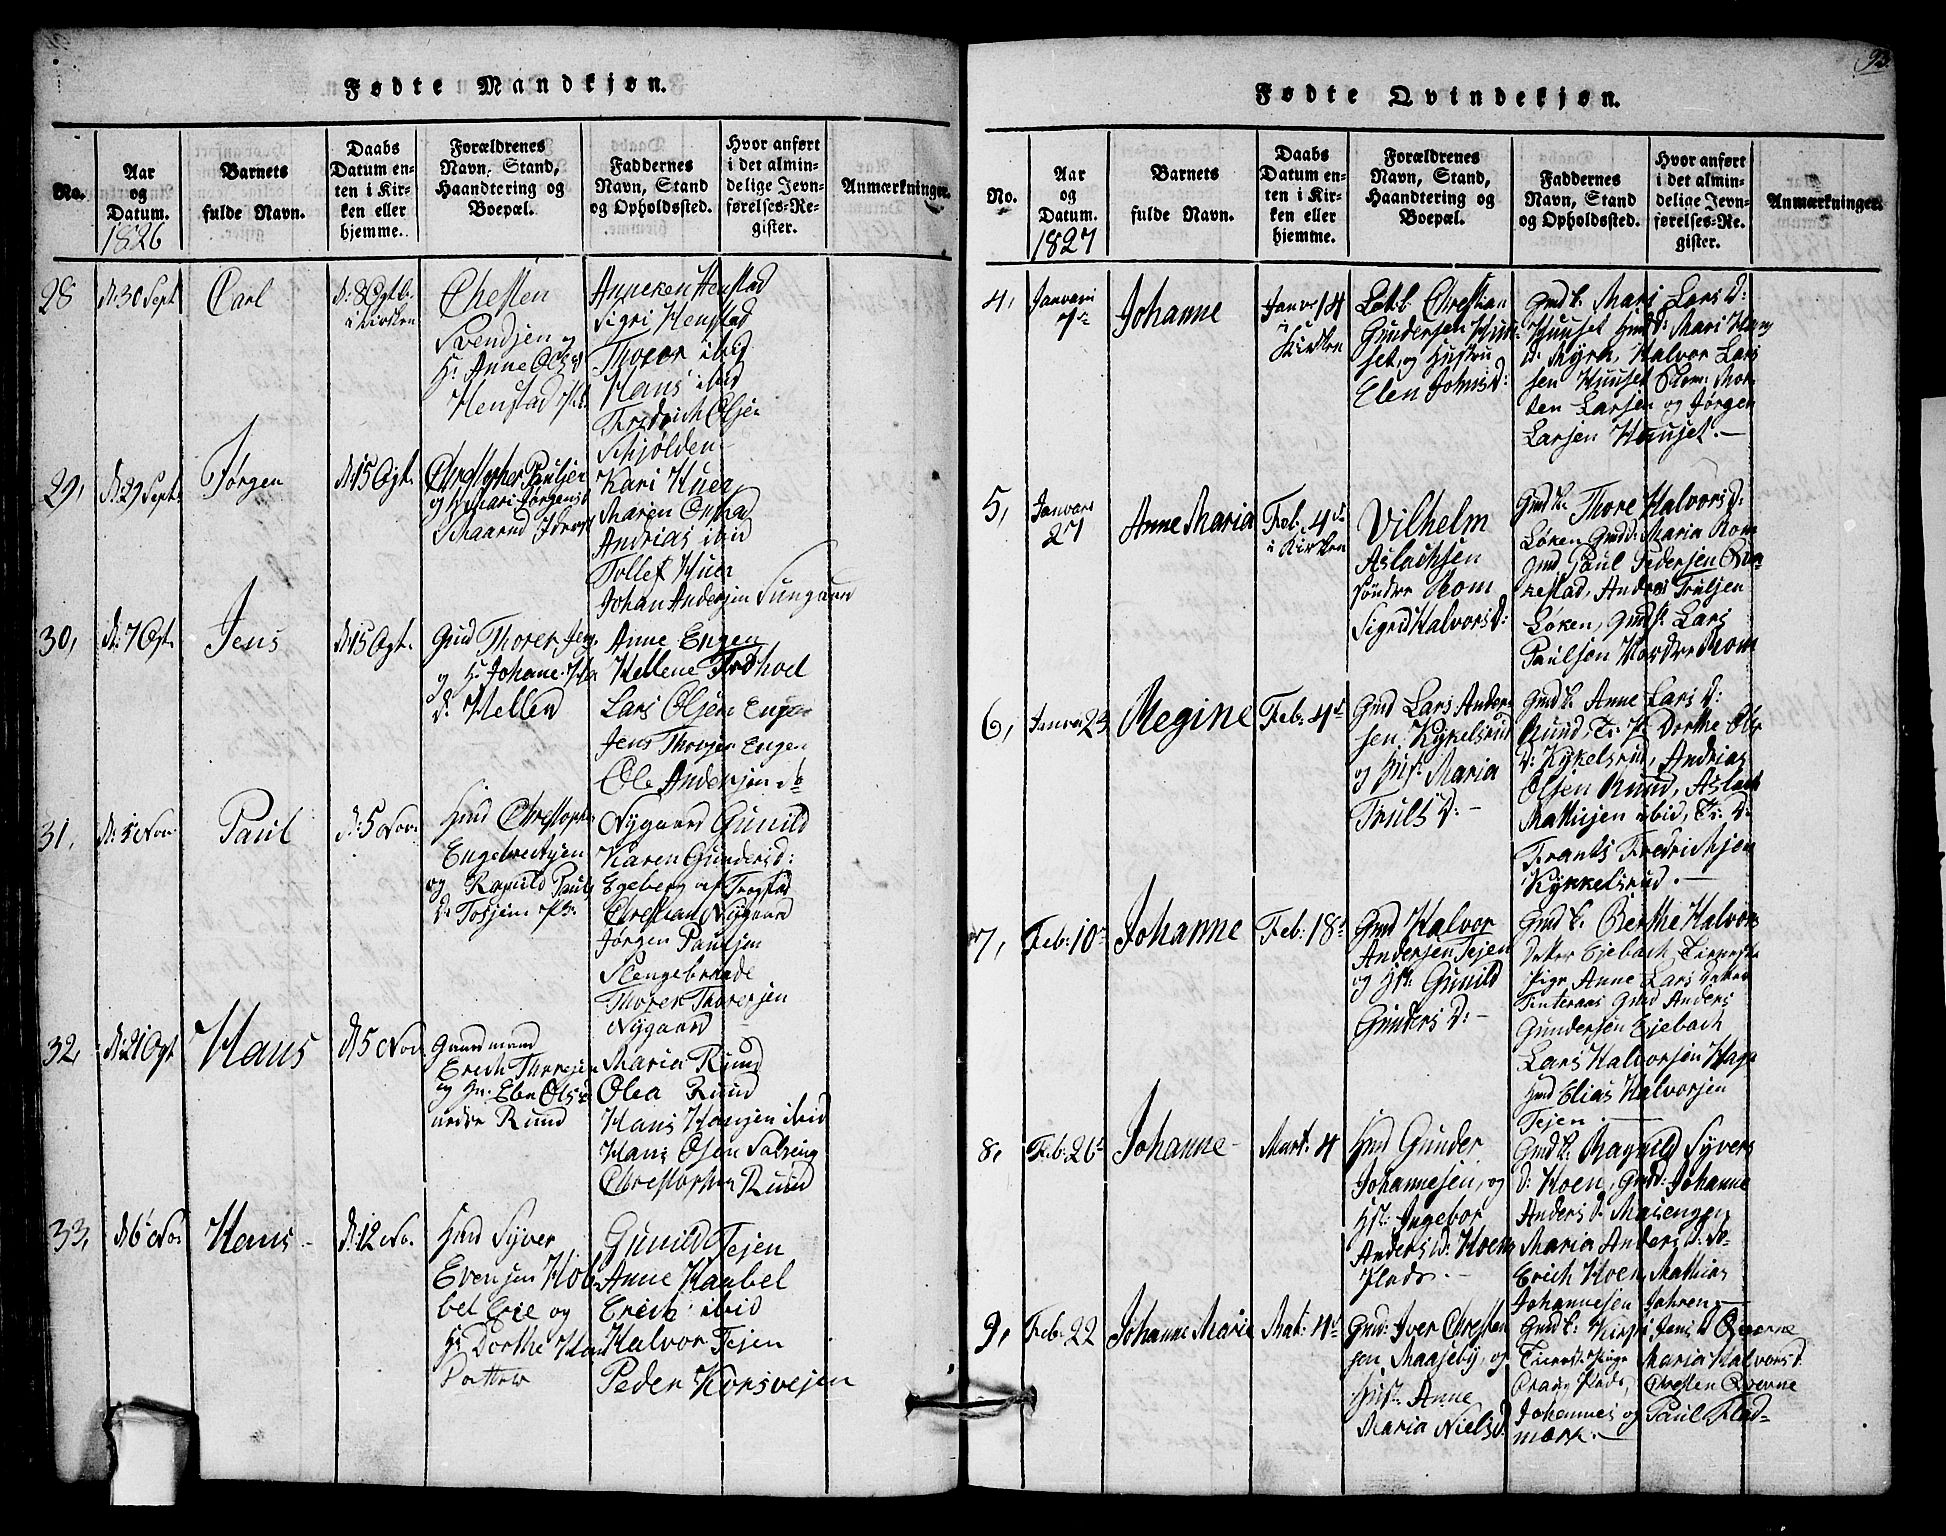 Fødte Mandkjøn.
No.
Aar
og
Datum.
1826
Barnets
fulde Navn.
Daabs
Datum en-
ten i Kir-
ken eller
hjemme.
Forældrenes
Navn, Stand,
Haandtering og
Boepæl.
Faddernes
Navn, Stand
og Opholdssted.
Hvor anført
i det almin-
delige Jevn-
førelses-Re-
gister.
Anmærkninger.
28
d: 30 Sept
Carl
d: 8 Ogtb.
i Kirken
Chresten
Svendsen og
H: Anne Olsd
Henstad
Anneken Henstad
Sigri Henstad
Thoer ibid
Hans ibid
Fredrich Olsen
Schjølden
29,
d: 29 Sept.
Jørgen
d: 15 Ogt.
Christopher Paulsen
og H: Mari Jørgensd
Schaarud
Kari Huer
Maren
Andrias ibid
Tollef Huer
Johan Andersen Sungaard
30,
d: 7 Ogt.
Jens
d: 15 Ogt.
Gmd Thorer Jens.
og H: Johane Ha
d: Hellen
Anne Engen
Hellene
Lars Olsen Engen
Jens Thorsen Engen
Ole Andersen do
31,
d: 1 Nov.
Paul
d: 5 Nov.
Hmd Christoph
Engebretsen
og Ragnild Pauls
d:
Nygaard Gunild
Karen Gundersd:
Egeberg af Trøgstad
Chrestian Nygaard
Jørgen Paulsen
Stengebraade
Thorer Thorersen
Nygaard
32,
d: 21 Ogt
Hans
d: 5 Nov
Gaardmand
Erich Thoresen
og H: Elen Olsd
nedre Ruud
Maria Ruud
Olea Ruud
Hans Hansen ibid
Hans Olsen
Christopher Ruud
33,
d: 6 No.
Hans
d: 12 No.
Hmd Syver
Evensen Hob-
bel Eie og
H: Dorthe Han
Datter
Gunild Tejen
Anne Haabel
Erich ibid
Halvor Tejen
Peder Korsvejen
93
Fødte Qvindekjøn.
No.
Aar
og
Datum.
1827
Barnets
fulde Navn.
Daabs
Datum en-
ten i Kir-
ken eller
hjemme.
Forældrenes
Navn, Stand,
Haandtering og
Boepæl.
Faddernes
Navn, Stand
og Opholdssted.
Hvor anført
i det almin-
delige Jevn-
førelses-Re-
gister.
Anmærkninger.
4,
Januari
Johanne
Janv 14
i
Kirken
Chrestian
Gundersen Huu-
set, og Hustru
Elen Johnsd:
Gmd k. Mari Lars D:
Huuset Gmd: Mari Hans
d: Myra, Halvor Lars
sen Huuset Mor-
ten Larsen og Jørgen
Larsen Huuset. —
5,
Januari
27
Anne Maria
Feb. 4de
i Kirken
Vilhelm
Aslachsen
søndre Rom
Sigrd Halvorsd:
Gmd k. Thore Halvors D:
Løken Gmdd: Maria Rom
Gmd Paul Pedersen
Andres Trulsen
Løken, Lars
Paulsen Nordre Rom
6,
Janva 23
Regine
Feb: 4d
Gmd Lars Ander-
sen Kykelsrud
og Hust: Maria
Truls D: —
Gmd k. Anne Lars D:
Ruud, Dorthe Ols
d: Kykelsrud, Andrias
Olsen Ruud, Aslach
Mathisen ibid,
Frants Fredrichsen
Kykkelsrud. —
7,
Feb: 10
Johanne
Feb: 18d
Gmd Halvor
Andersen Tejen
og Hst: Gunild
Gunders D: —
Gmd k. Berthe Halvors
Datter Ejebach, Tieneste
Pige Anne Lars Datter
Gmd Anders
Gundersen Ejebach
Lars Halvorsen Haga
Hmd Elias Halvorsen
Tejen. —
8,
Feb: 26
Johanne
Mart: 4
Hmd Gunder
Johannesen, og
Hst: Ingebor
Anders D: Hoens
Plads. —
Gmd k. Ragnild Syvers
d: Hoen, Gmd: Johanne
Anders D: Masengen
Maria Anders D:
Erich Hoen, Mathias
Johannesen Jahren. —
9,
Feb: 22
Johanne Marie
Mat: 4d
Gmd: Iver Chresten
sen Maaseby, og
Hust: Anne
Maria Nielsd
Gmd k: Kirsti Jens D Qverne
Tieneste Pige Maria Halvorsd.
Plads, Chresten Qverne
Johannes og Paul Flad-
mark. —